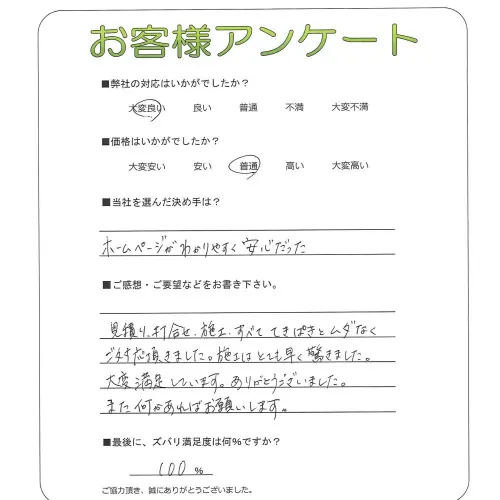 お客様アンケート
■弊社の対応はいかがでしたか？
大変良い 良い 普通 不満 大変不満
■価格はいかがでしたか？
大変安い 安い 普通 高い 大変高い
■当社を選んだ決め手は？
ホームページがわかりやすく安心だった
■ご感想・ご要望などをお書き下さい。
見積り、打合せ、施工、すべててきぱきとムダなく
ご対応頂きました。施工はとても早く驚きました。
大変満足しています。ありがとうございました。
また何かあればお願いします。
■最後に、ズバリ満足度は何％ですか？
100％
ご協力頂き、誠にありがとうございました。